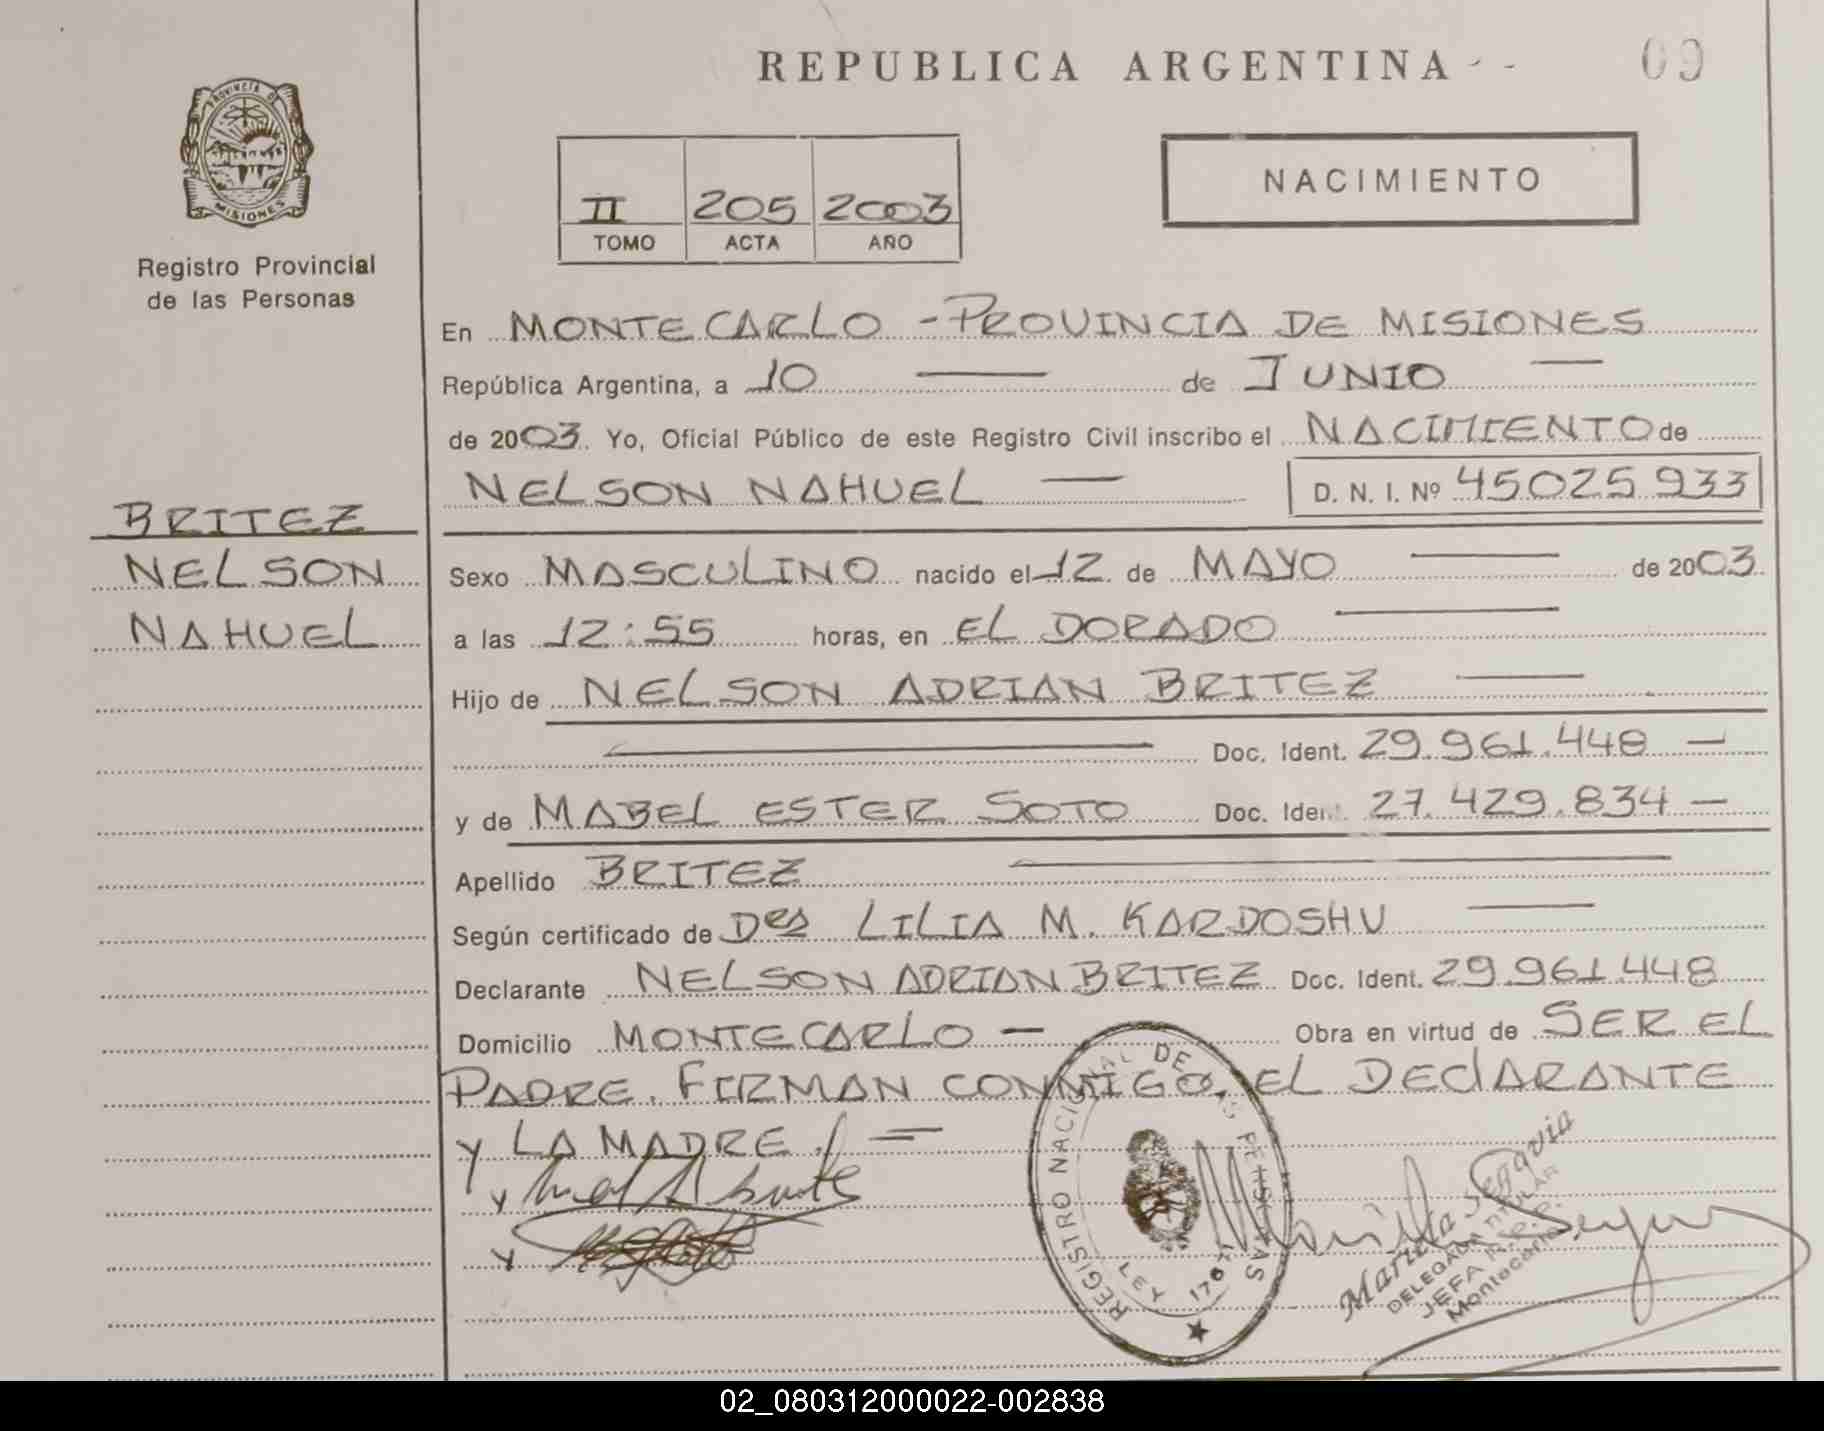 REPUBLICA ARGENTINA - -
09
PROVINCIA DE
MISIONES
Registro Provincial
de las Personas
II 205 2003
TOMO ACTA AÑO
NACIMIENTO
En MONTECARLO - PROVINCIA DE MISIONES
República Argentina, a 10 — de JUNIO —
de 2003. Yo, Oficial Público de este Registro Civil inscribo el NACIMIENTO de
NELSON NAHUEL — D. N. I. Nº 45025933
BRITEZ
NELSON
NAHUEL
Sexo MASCULINO nacido el 12 de MAYO — de 2003
a las 12:55 horas, en EL DORADO —
Hijo de NELSON ADRIAN BRITEZ —
— Doc. Ident. 29.961.448 —
y de MABEL ESTER SOTO Doc. Ident. 27.429.834 —
Apellido BRITEZ —
Según certificado de LILIA M. KARDOSHU —
Declarante NELSON ADRIAN BRITEZ Doc. Ident. 29.961.448
Domicilio MONTECARLO — Obra en virtud de SER EL
PADRE. FIRMAN CONMIGO, EL DEClARANTE
Y LA MADRE. =
REGISTRO NACIONAL DE LAS PERSONAS
LEY
Mariela Segovia
DELEGADA TITULAR
JEFA R.P.P.
Montecarlo
02_080312000022-002838